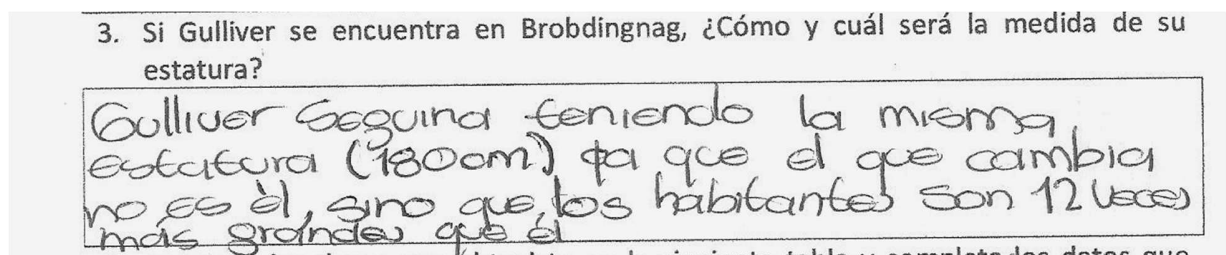 3. Si Gulliver se encuentra en Brobdingnag, ¿Cómo y cuál será la medida de su
estatura?
Gulliver Seguira teniendo la misma
estatura (1800m) ya que el que cambia
no es èl, sino que, los habitantes son 12 veces
más grandes que él